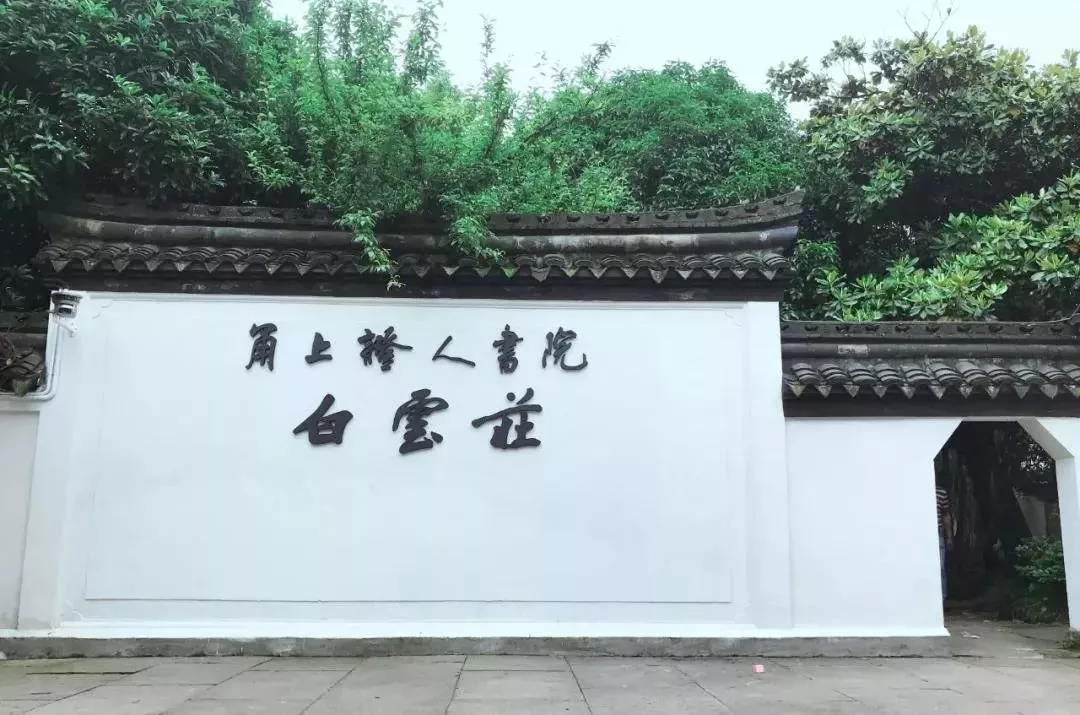 甬上證人書院
白雲莊